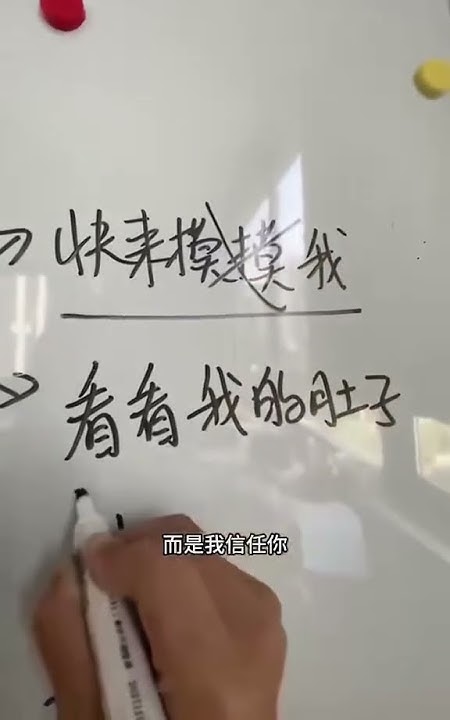 快来摸摸我
看看我的肚子
而是我信任你